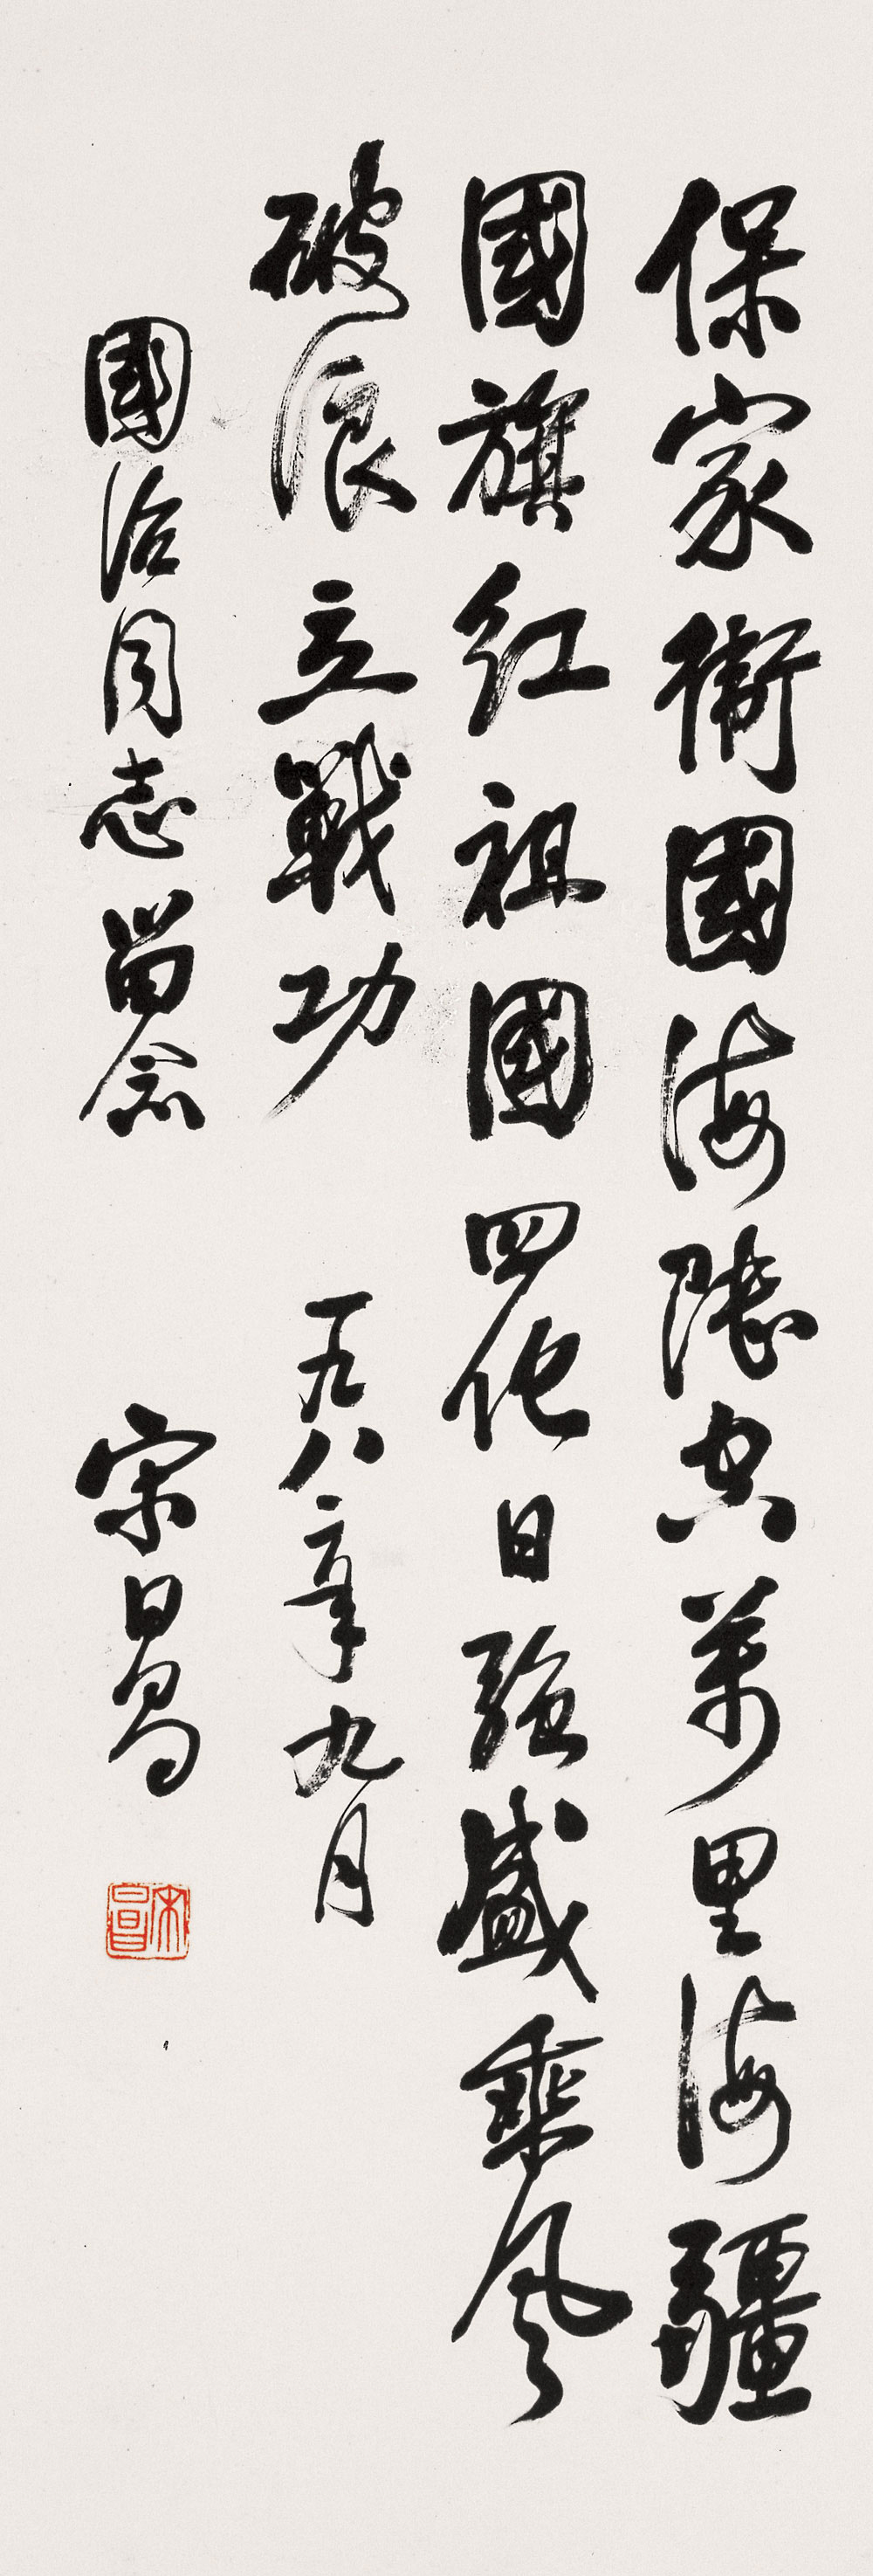 保家衛國海陸空萬里海疆
國旗红祖國四化日強盛乘風
破浪立戰功 一九八二年九月
團治同志留念 宋日昌
宋日昌